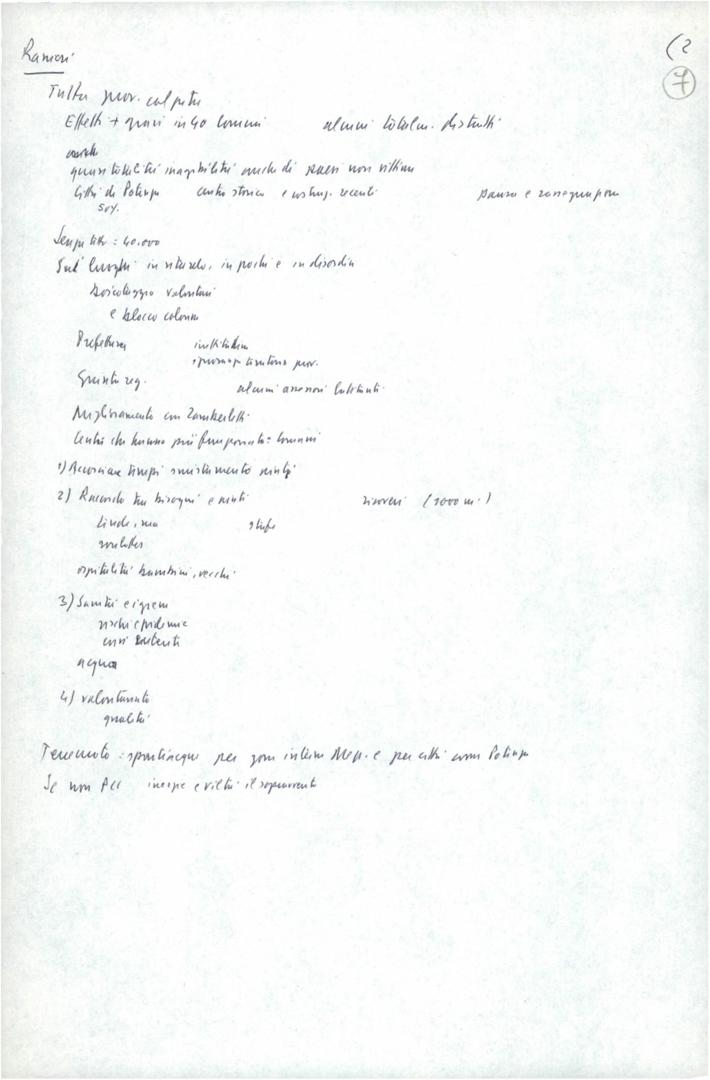 Ranieri
(2
7
Tutta prov. colpita
Effetti + gravi in 40 comuni alcuni totalm. distrutti
quasi totalità inagibilità anche di paesi non vittime
Città di Potenza centro storico e costruz. recenti paura e
Senza tetto: 40.000
Sui luoghi in ritardo, in pochi e in disordine
Boicottaggio volontari
e blocco colonne
Prefettura inettitudine
prov.
Giunta reg. alcuni assessori latitanti
Miglioramento con Zamberletti
Centri che hanno più funzionato = comuni
1) Accorciare tempi smistamento aiuti
2) Raccordo tra bisogni e aiuti ricoveri (1000 m.)
tende, ma stufe
roulottes
ospitalità bambini, vecchi
3) Sanità e igiene
rischi epidemie
acqua
4) volontariato
qualità
Terremoto: spartiacque per zone interne Mezz. e per città come Potenza
Se non inerzie e viltà il sopravvento